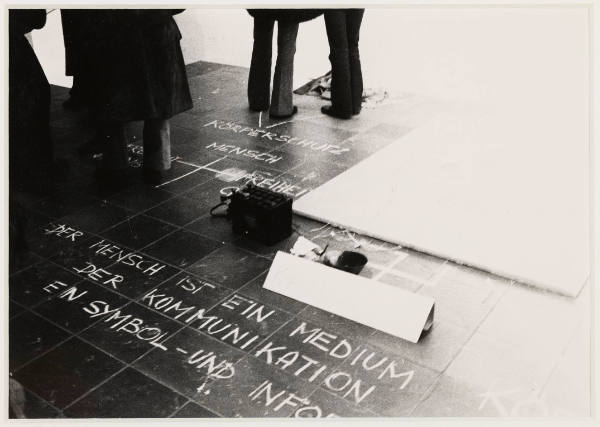 KÖRPERSCHUTZ
MENSCH
FREIHEI
DER MENSCH IST EIN MEDIUM
DER KOMMUNIKATION
EIN SYMBOL-UND INFO
KO